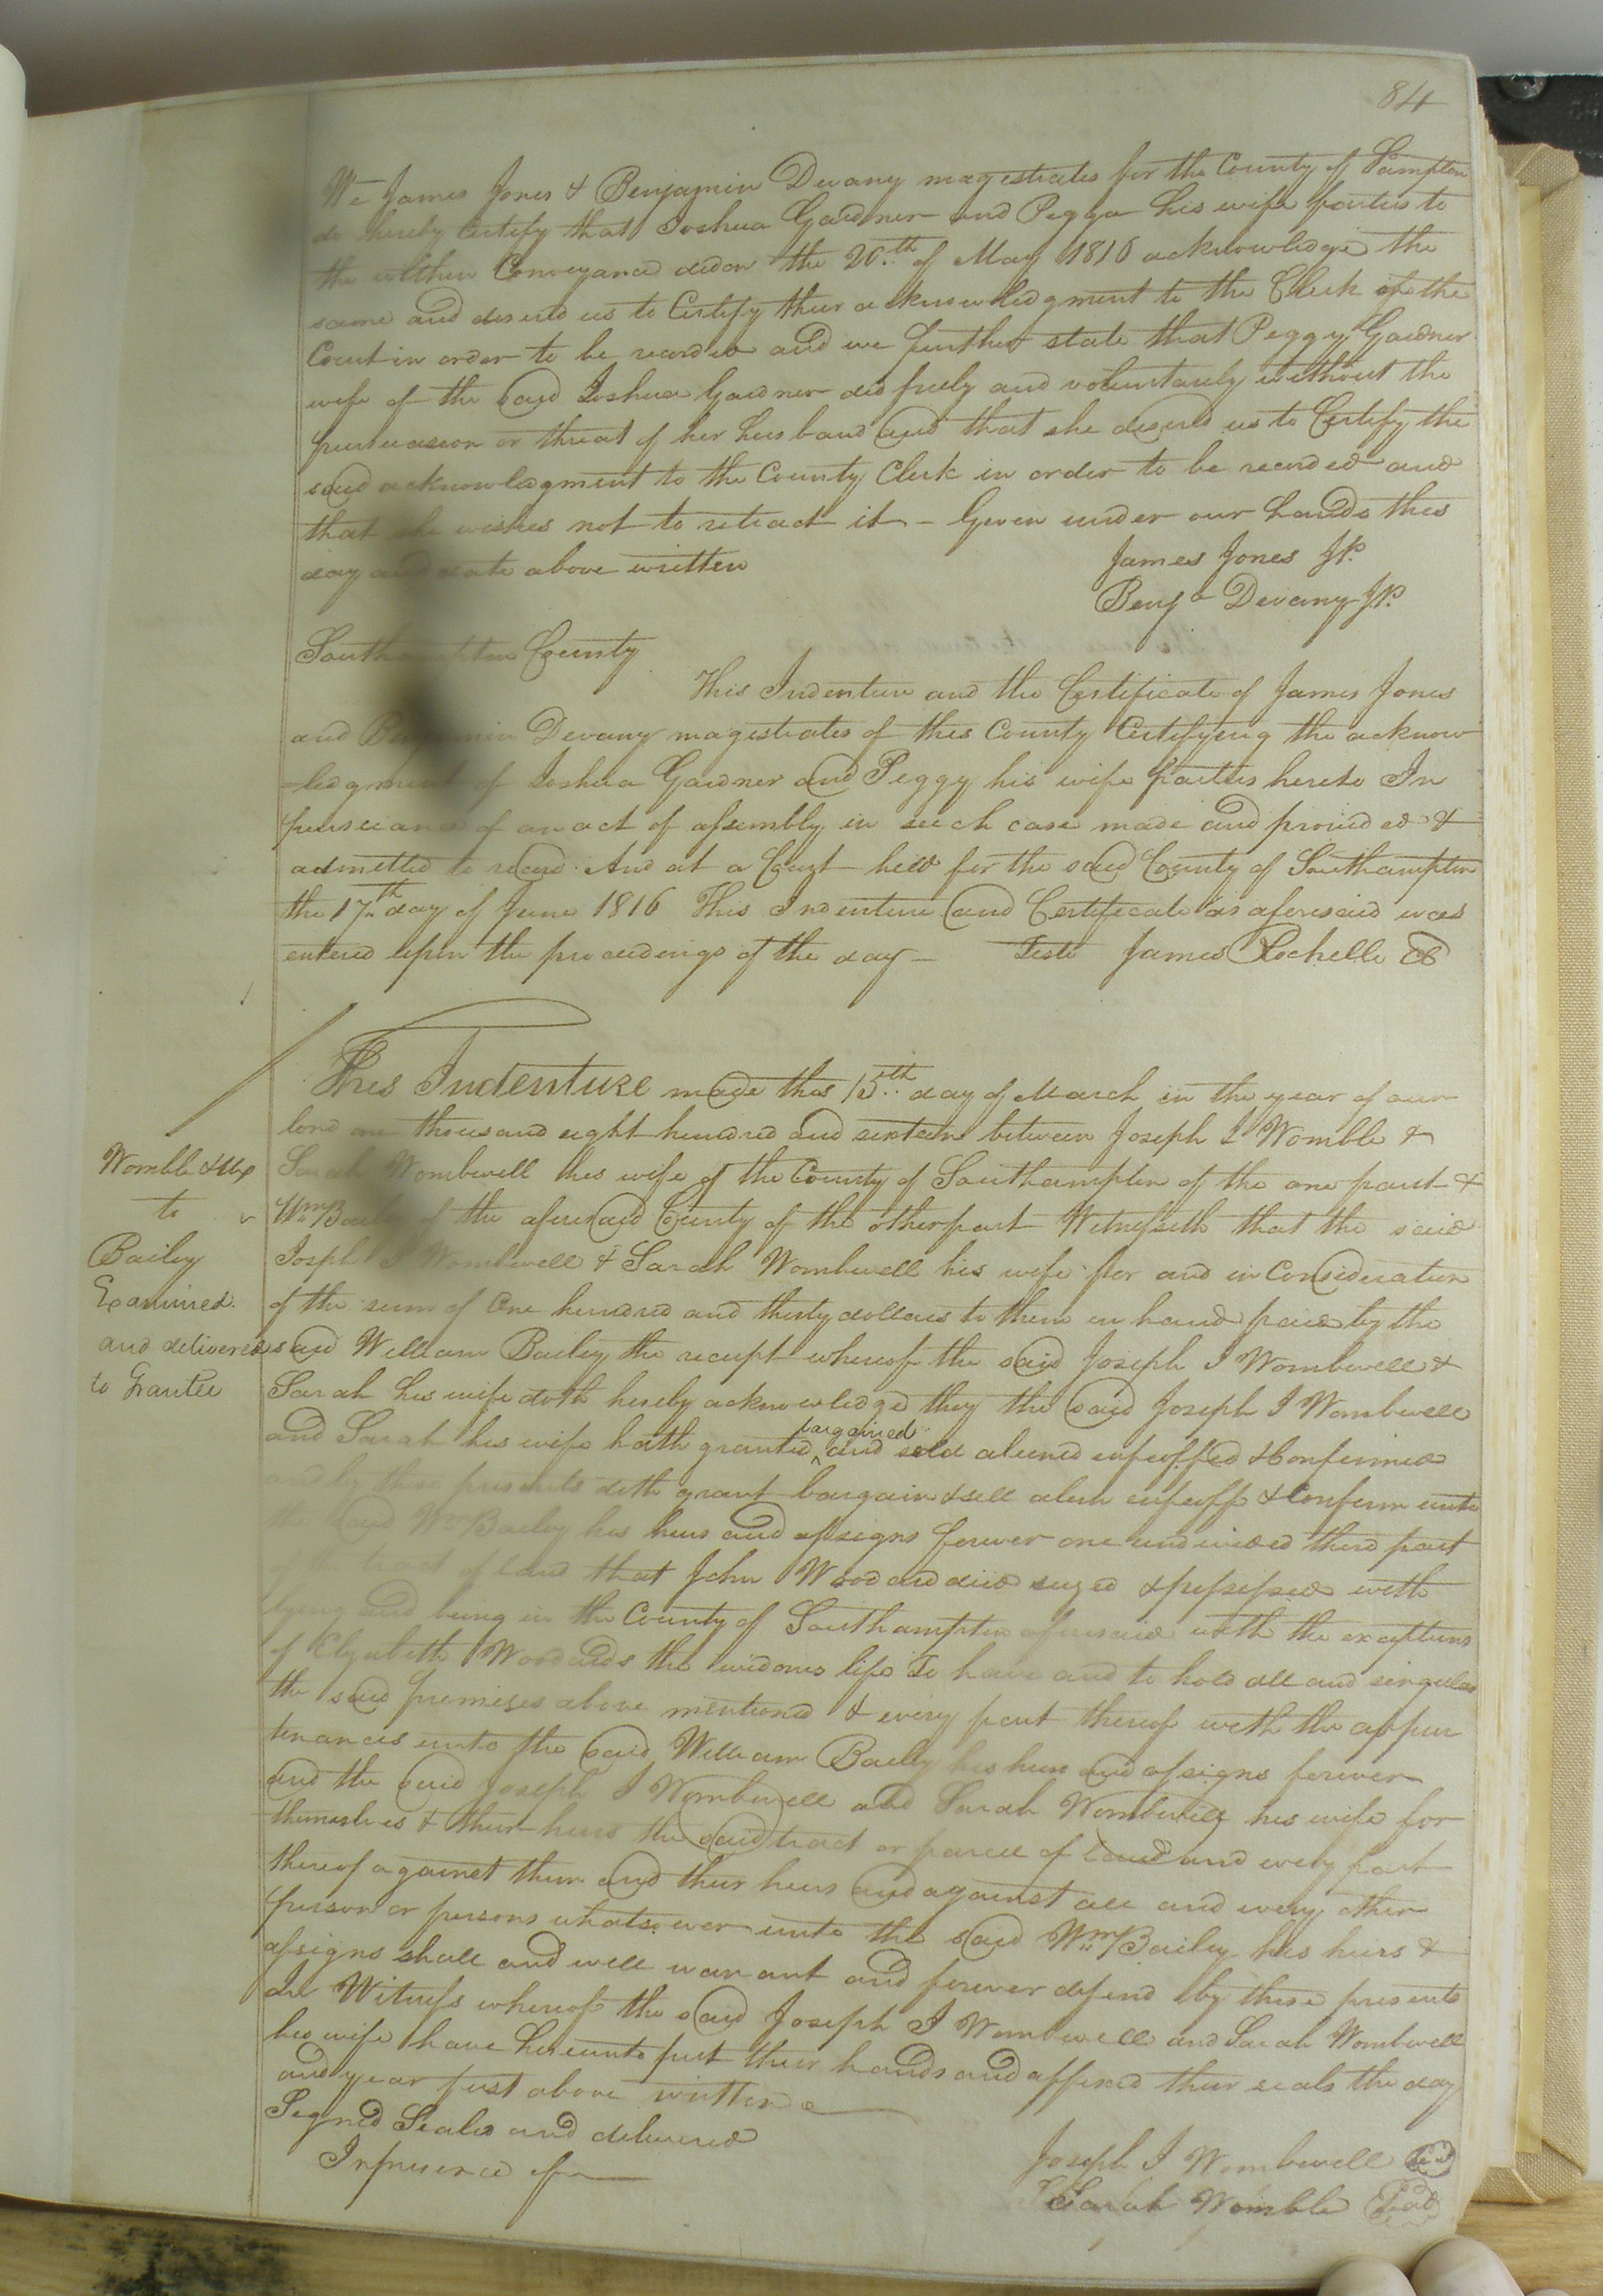 84
We James Jones & Benjamin Devany magestrates for the County of Sampton
do hereby Certify that Joshua Gardner and Peggy his wife parties to
the within Conveyance did on the 20th of May 1816 acknowledge the
same and desired us to Certify their acknowledgment to the Clerk of the
Court in order to be recorded and we further state that Peggy Gardner
wife of the said Joshua Gardner did freely and voluntarely without the
persuasion or threat of her husband and that she desired us to Certify the
said acknowledgment to the County Clerk in order to be recorded and
that she wishes not to retract it - Given under our hands this
day and date above written
James Jones JP.
Benja Devany JP.
Southampton County
This Indenture and the Certificate of James Jones
and Benjamin Devany magestrates of this County Certifying the acknow
-ledgment of Joshua Gardner and Peggy his wife parties hereto In
pursuance of an act of assembly in such case made and provided &
admitted to record. And at a Court held for the said County of Southampton
the 17th day of June 1816 This Indenture and Certificate as aforesaid was
entered upon the proceedings of the day - Teste James Rochelle
This Indenture made this 15th day of March in the year of our
lord one thousand eight hundred and sixteen between Joseph I Womble &
Womble & Ux
to
Bailey
Examined
and delivered
to Grantee
Sarah Wombwell his wife of the County of Southampton of the one part &
Wm Bailey of the aforesaid County of the other part Witnesseth that the said
Joseph I Wombwell & Sarah Wombwell his wife for and in Consideration
of the sum of One hundred and thirty dollars to them in hand paid by the
said William Bailey the receipt whereof the said Joseph I Wombwell &
Sarah his wife doth hereby acknowledge they the said Joseph I Wombwell
and Sarah his wife hath granted bargained and sold aliened enfeoffed & Confirmed
and by these presents doth grant bargain & sell alien enfeoff & Confirm unto
the said Wm Bailey his heirs and assigns forever one undivided third part
of the tract of land that John Woodard died seized & possessed with
lying and being in the County of Southampton aforesaid with the exceptions
of Elizabeth Woodards the widows life To have and to hold all and singular
the said premises above mentioned & every part thereof with the appur
tenances unto the said William Bailey his heirs and assigns forever
and the said Joseph I Wombwell and Sarah Wombwell his wife for
themselves & their heirs the said tract or parcel of land and every part
thereof against them and their heirs and against all and every other
person or persons whatsoever unto the said Wm Bailey his heirs &
assigns shall and will warrant and forever defend by these presents
In Witness whereof the said Joseph I Wombwell and Sarah Wombwell
his wife have hereunto put their hands and affixed their seals the day
and year first above written
Signed Sealed and delivered
In presence of
Joseph I Wombwell
Sarah Womble Seal